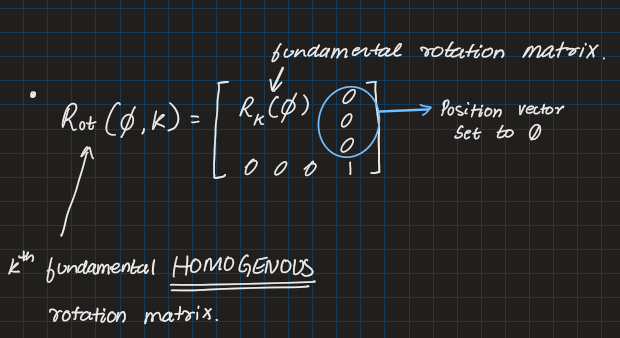 fundamental rotation matrix.
• Rot (ϕ, k) = [ R_K(ϕ) 0
0
0
0 0 0 1 ]
Position vector
set to 0
k^th fundamental HOMOGENOUS
rotation matrix.